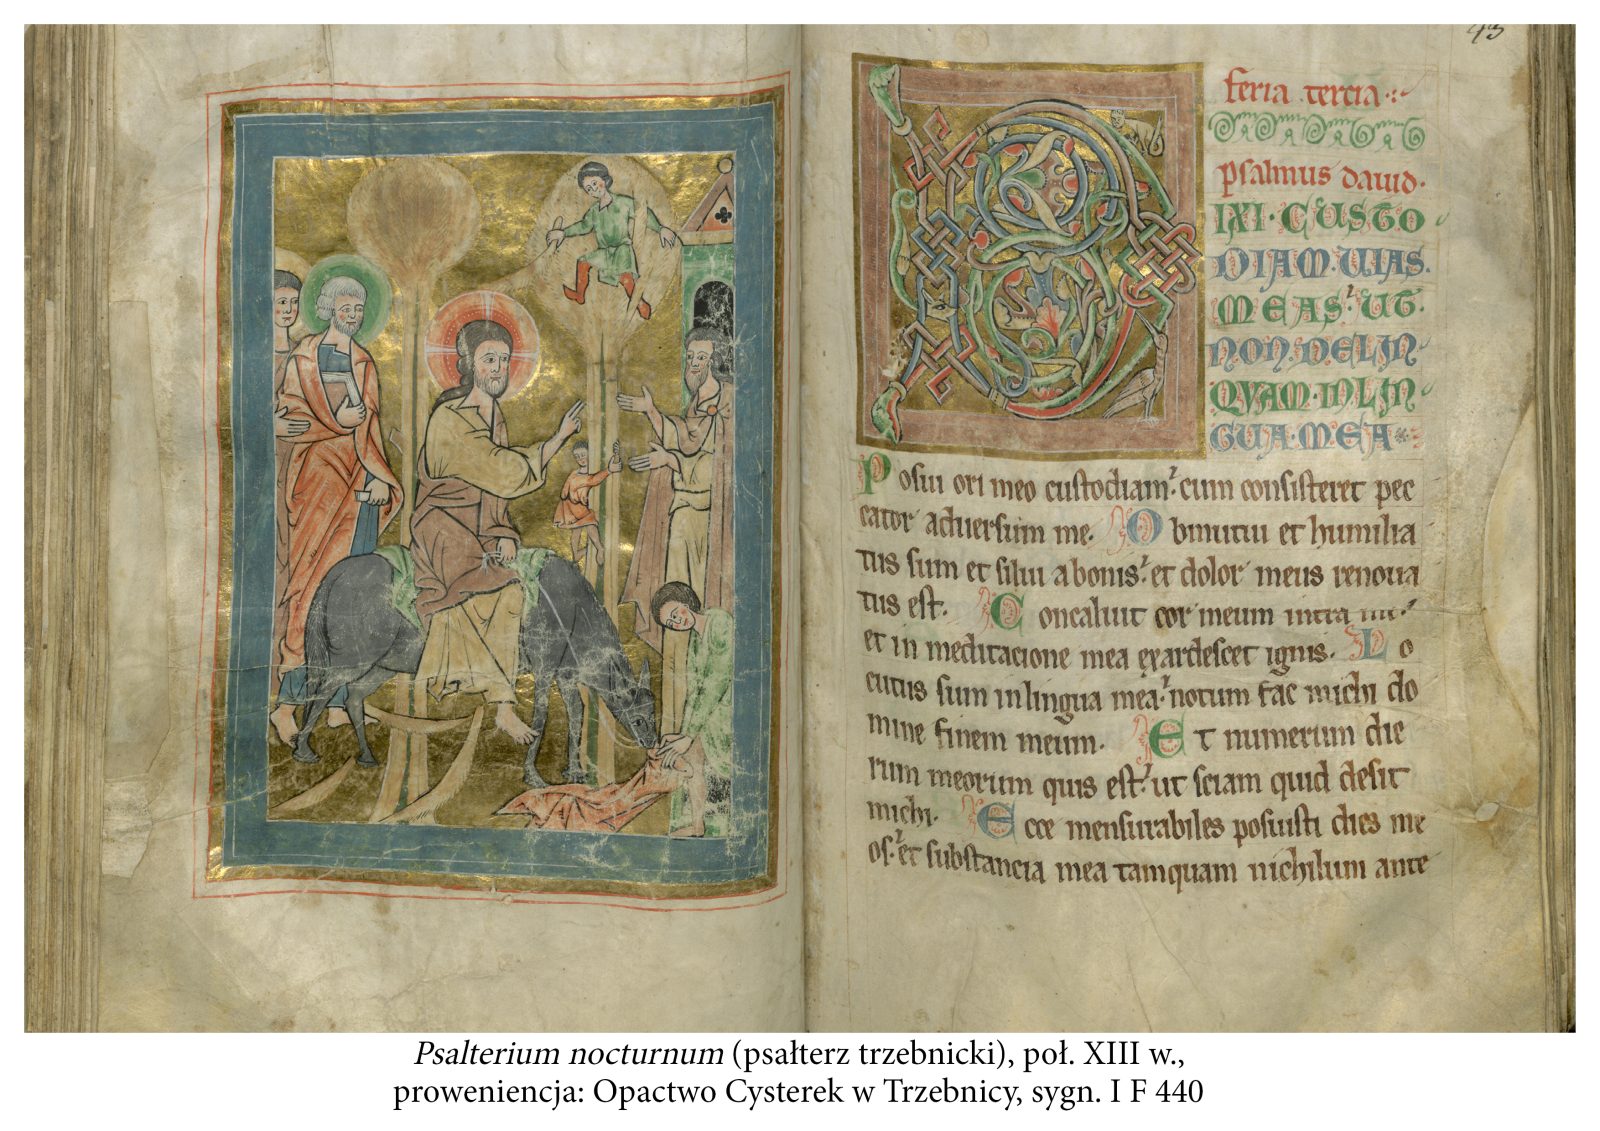 43
feria tercia
psalmus dauid.
IXI. CUSTO
DIAM. UIAS.
MEAS. UT.
NON. DELIN
QUAM. IN LIN
GUA. MEA
Posui ori meo custodiam. cum consisteret pec
cator aduersum me. Obmutui et humilia
tus sum et silui a bonis. et dolor meus renoua
tus est. Concaluit cor meum intra me.
et in meditacione mea exardescet ignis. Lo
cutus sum in lingua mea. notum fac michi do
mine finem meum. Et numerum die
rum meorum quis est. ut sciam quid desit
michi. Ecce mensurabiles posuisti dies me
os. et substancia mea tamquam nichilum ante
Psalterium nocturnum (psałterz trzebnicki), poł. XIII w.,
proweniencja: Opactwo Cysterek w Trzebnicy, sygn. I F 440